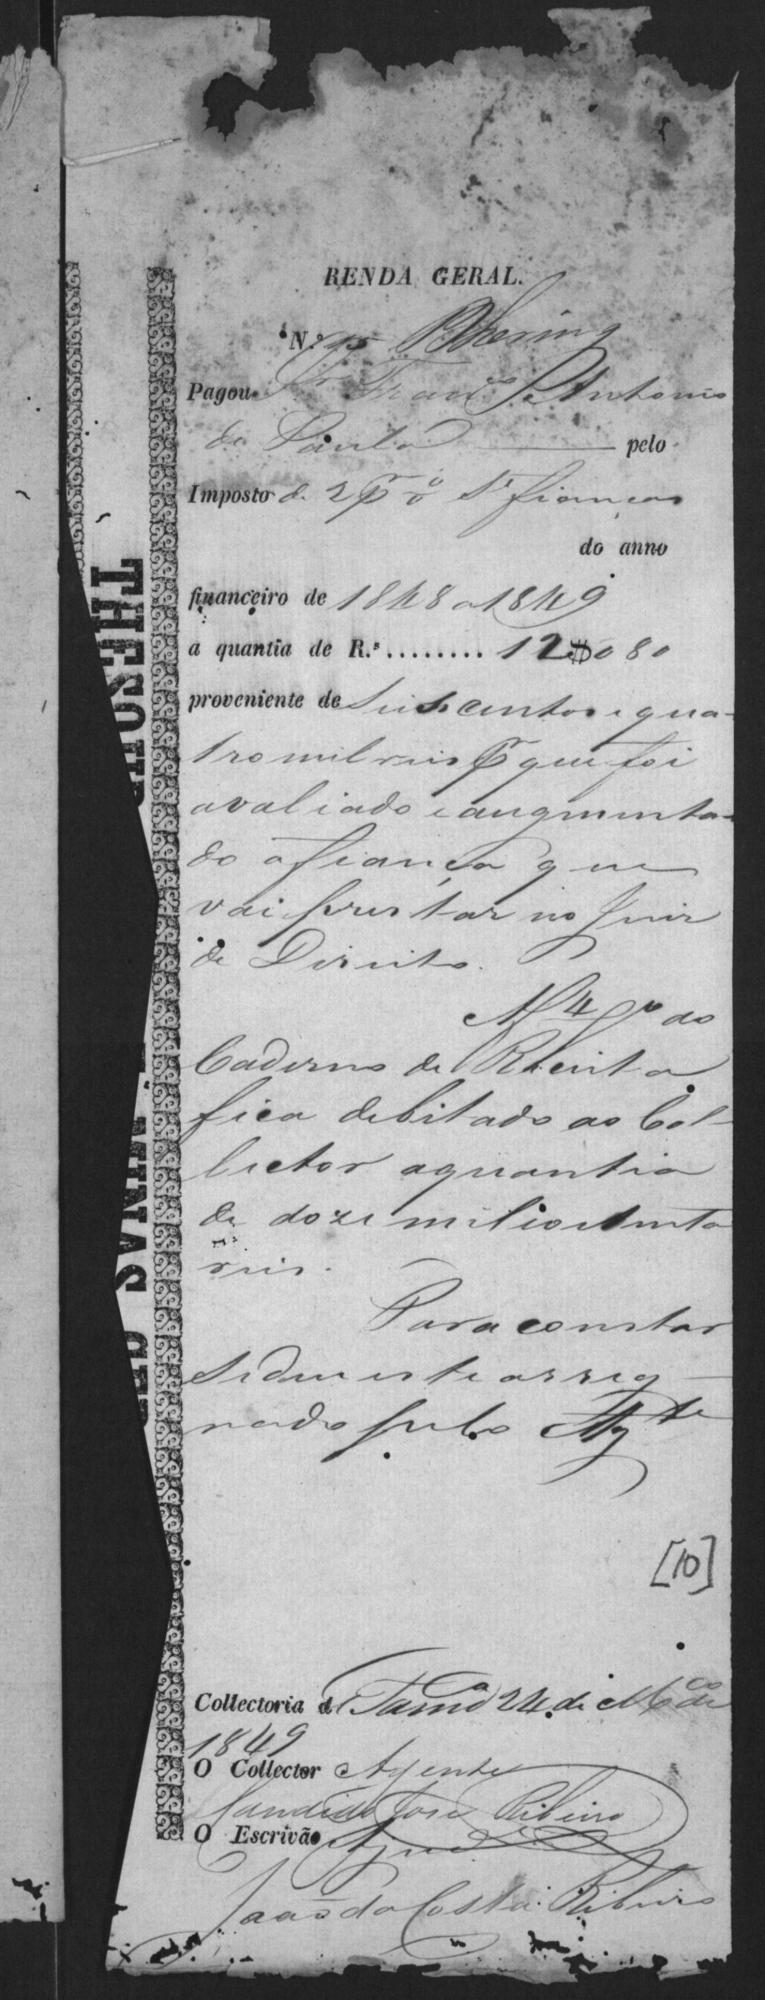 RENDA GERAL.
N.º 15 Bhering
Pagou o Sr. Franco. Antonio
de Paula pelo
Imposto de 2 p% Se. fianças
do anno
financeiro de 1848 a 1849
a quantia de R.s ........ 12$080
proveniente de Seis centos e qua-
tro mil reis pr que foi
avaliado e augmenta-
do a fiança que
vai prestar no Juiz
de Direito.
Af 4 do
Caderno de Receita
fica debitado ao Col-
lector a quantia
de doze mil e oitenta
reis.
Para constar
se deu este assig-
nado pelo Agte
[10]
Collectoria d 24 de Mco de
1849
O Collector Agente
Candido Jose Ribeiro
O Escrivão Ajude
João da Costa Ribeiro
THESOUR
DE MINAS GER